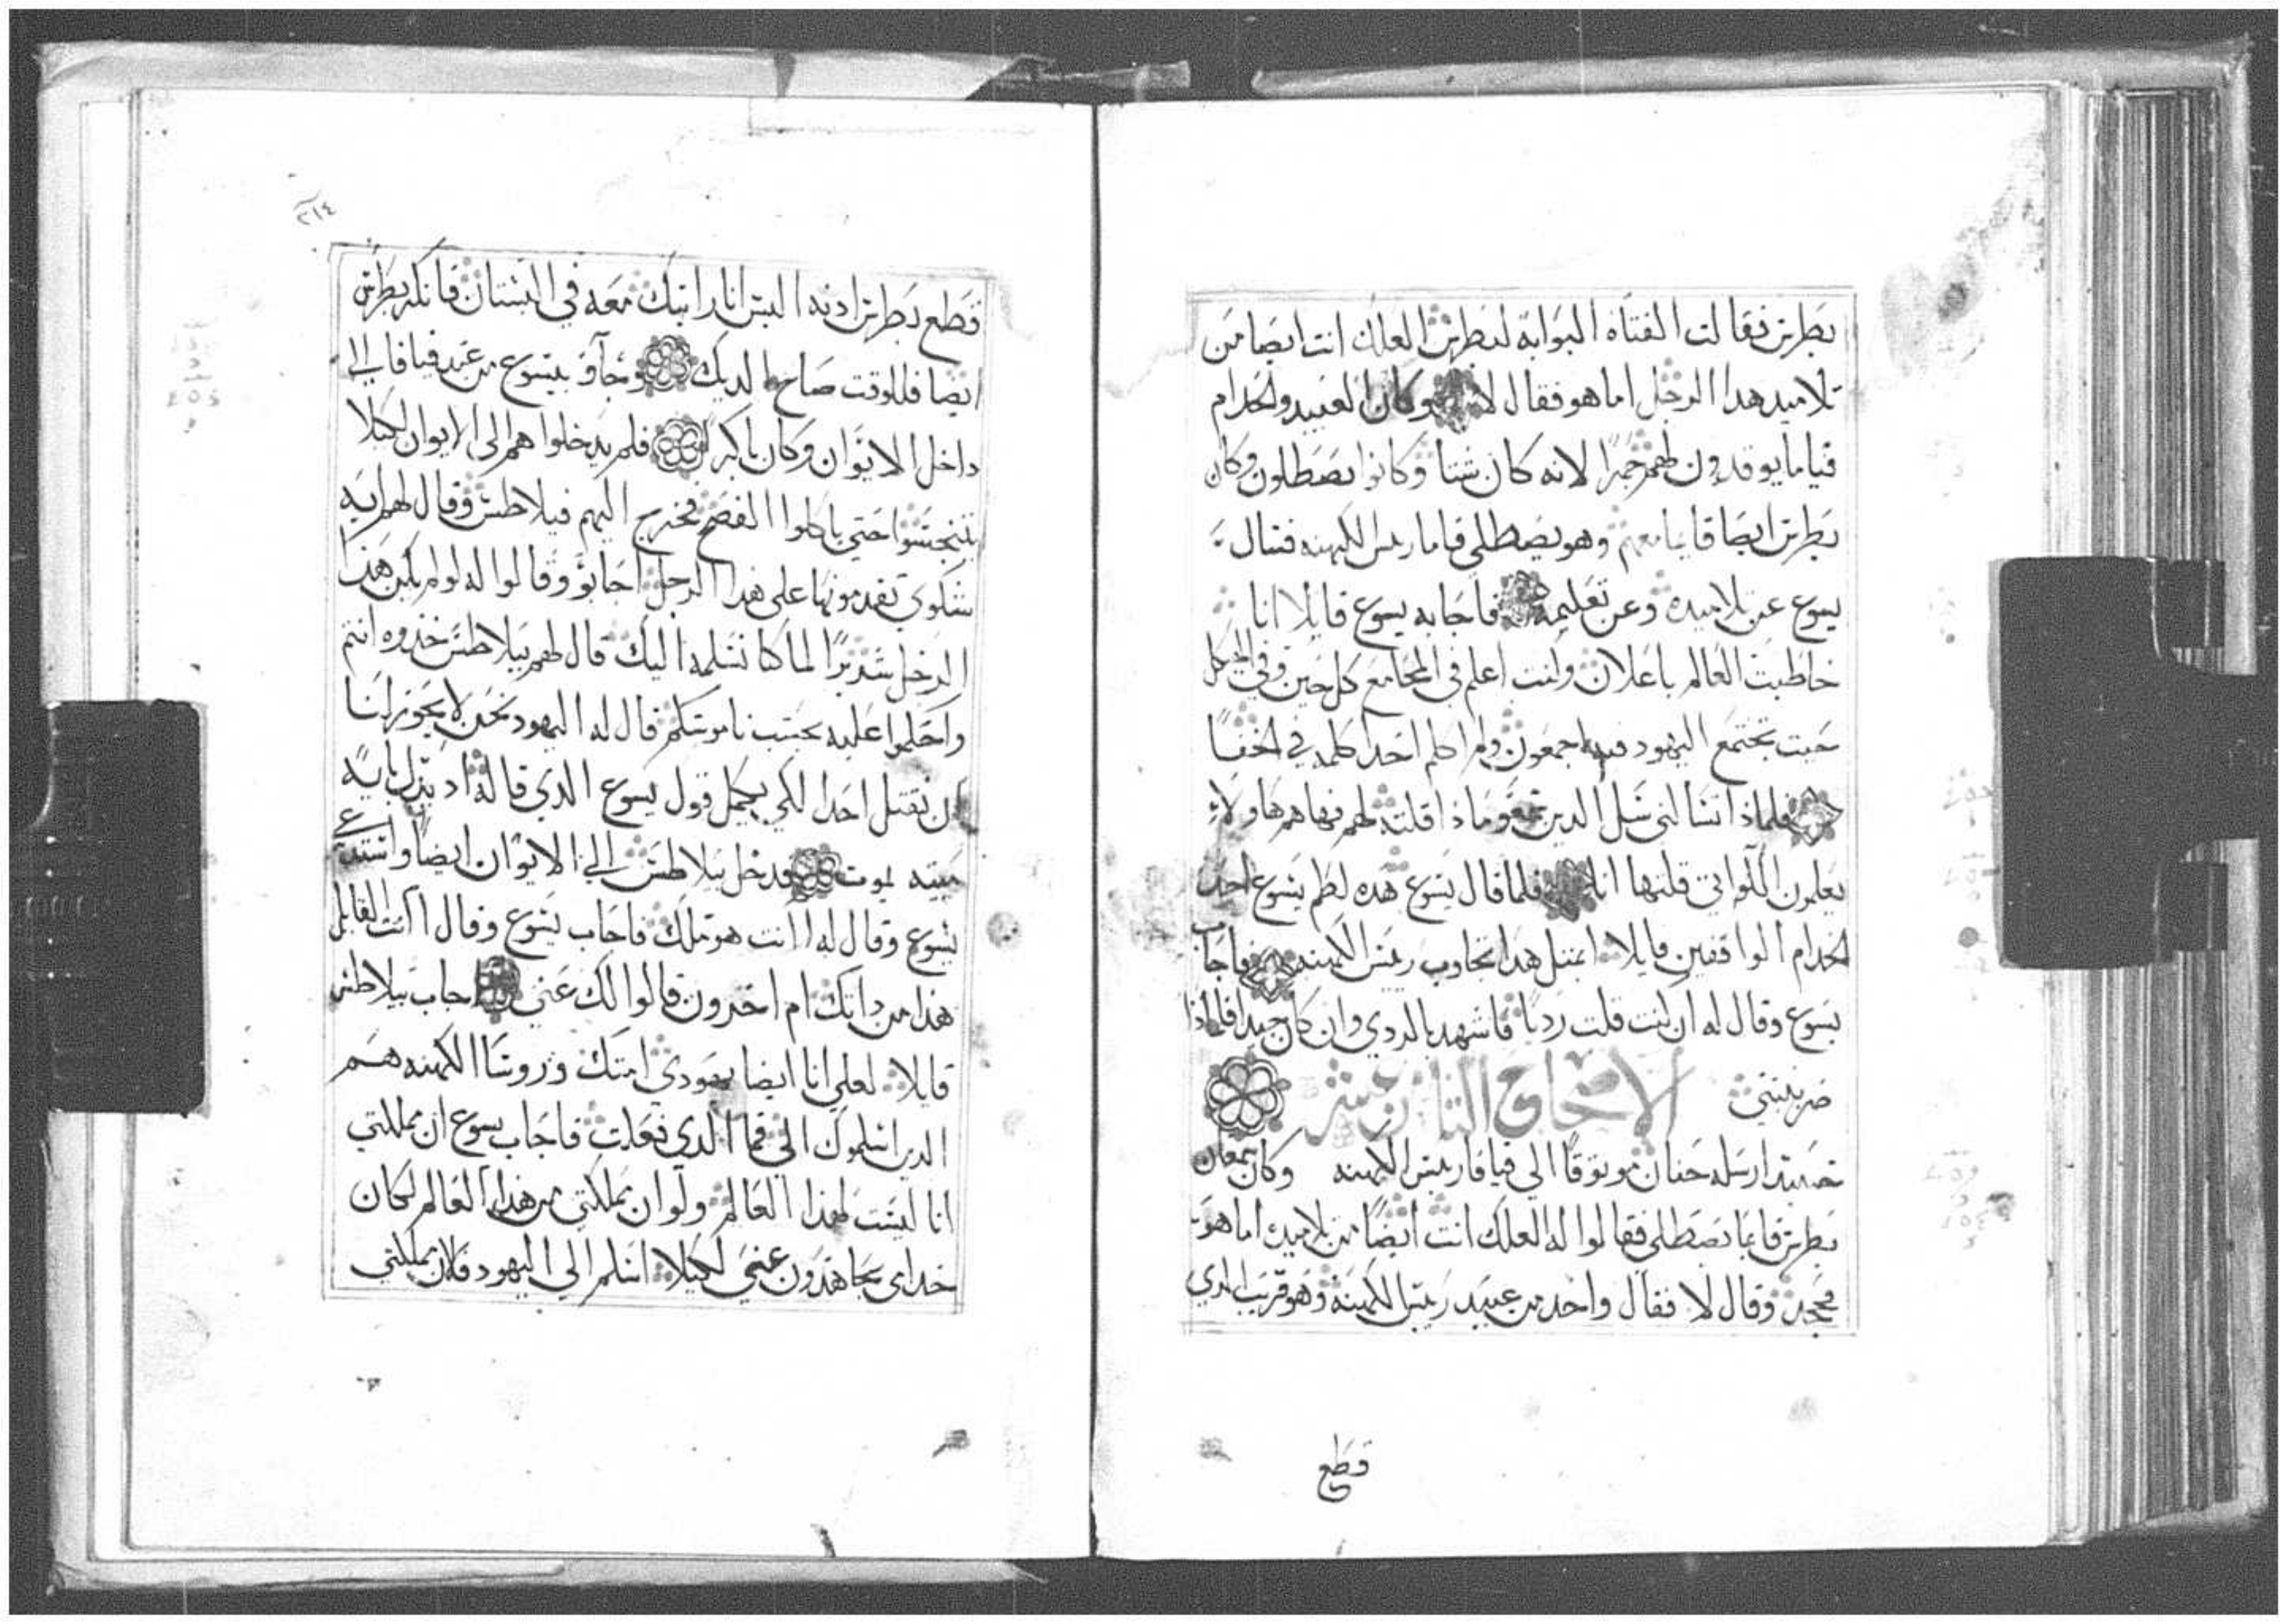 بطرس فقالت الفتاه البوابه لبطرس العلك انت ايضا من
تلاميد هدا الرجل اما هو فقال لا وكان العبيد والخدام
قياما يوقدون لهم جمرا لانه كان شتا وكانوا يصطلون وكان
بطرس ايضا قايما معهم وهو يصطلي فاما ريس الكهنه فسال
يسوع عن تلاميده وعن تعليمه فاجابه يسوع قايلا انا
خاطبت العالم باعلان وانت اعلم في المجامع كل حين وفي الهيكل
حيت تجتمع اليهود فيه اجمعون ولم اكلم احدا كلمه في الخفا
فلماذا تسالني سل الدين وماذا قلته لهم فها هم هاولاء
يعلمون اللواتي قلتها انا فلما قال يسوع هده لطم يسوع احد
الخدام الواقفين قايلا امتل هدا تجاوب ريس الكهنه فاجاب
يسوع وقال له ان كنت قلت رديا فاشهد بالردي وان كان جيدا فلماذا
ضربتني الاصحاح الثامن عشر
حينيد ارسله حنان موثوقا الي قيافا ريس الكهنه وكان سمعان
بطرس قايما يصطلي فقالوا له العلك انت ايضا من تلاميده اما هو
فجحد وقال لا فقال واحد من عبيد ريس الكهنه وهو قريب الدي
قطع
٢١٤
قطع بطرس ادنه اليس انا رايتك معه في البستان فانكر بطرس
ايضا فللوقت صاح الديك وجآو بيسوع من عند قيافا الي
داخل الايوان وكان باكر فلم يدخلوا هم الى الايوان لكيلا
يتنجسوا حتي ياكلوا الفصح فخرج اليهم فيلاطس وقال لهم ايه
شكوي تقدمونها على هدا الرجل اجابوو وقالوا له لولم يكن هذا
الرجل شريرا لما كنا نسلمه اليك قال لهم بيلاطس خذوه انتم
واحكموا عليه بحسب ناموسكم قال له اليهود نحن لا يجوز لنا
ان نقتل احدا لكي يكمل قول يسوع الدي قاله اد يدل باية
ميته يموت فدخل بيلاطس الي الايوان ايضا واستدعي
يسوع وقال له اانت هو ملك فاجاب يسوع وقال اانت القايل
هذا من داتك ام اخرون قالوا لك عني اجاب بيلاطس
قايلا لعلي انا ايضا يهودي امتك وروسا الكهنه هم
الدين اسلموك الي فما الدي فعلت فاجاب يسوع ان مملكتي
انا ليست لهذا العالم ولو ان مملكتي من هدا العالم لكان
خدامي يجاهدون عني لكيلا اسلم الي اليهود فالان مملكتي